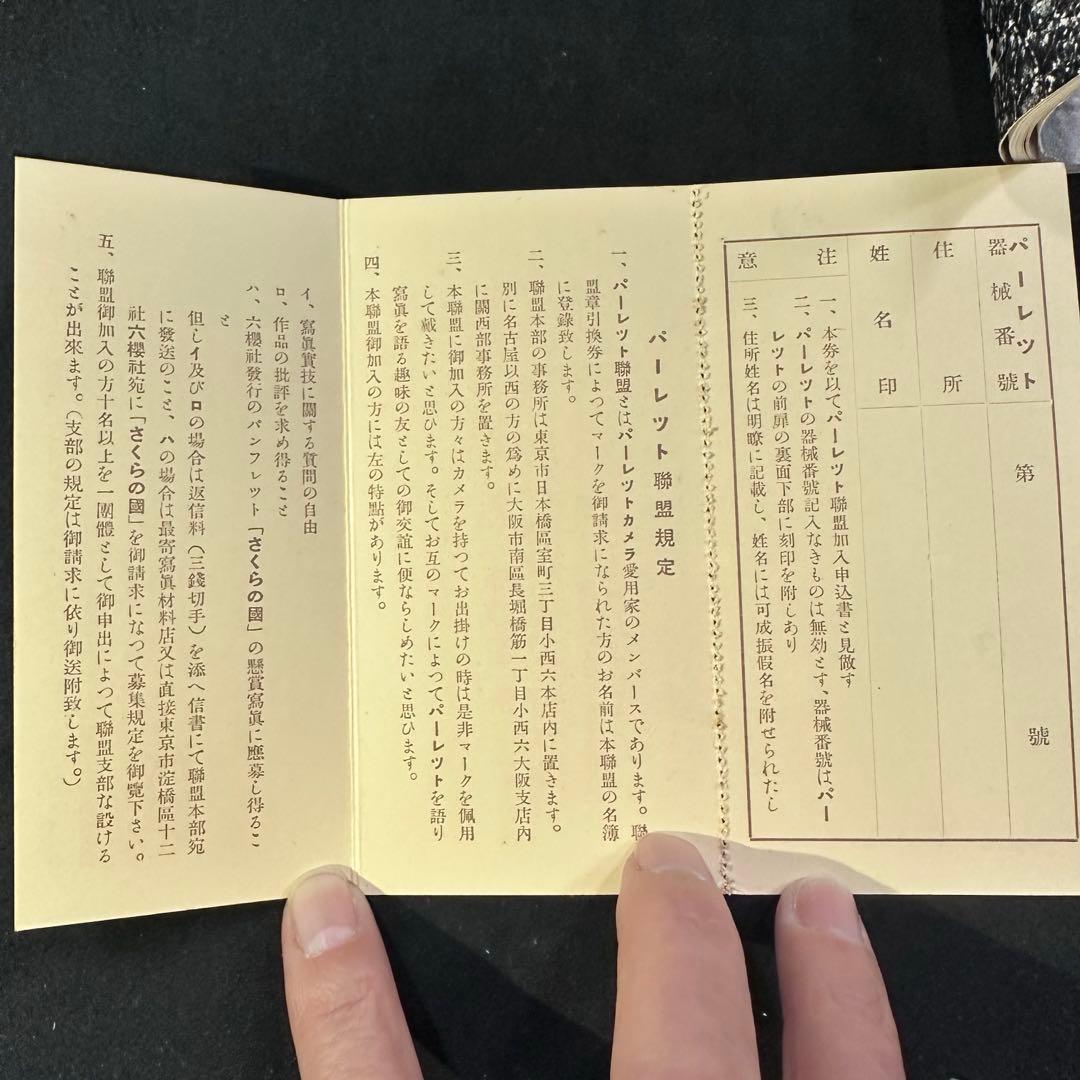 パーレット
器械番號 第 號
住所
姓名印
注意
一、本券を以てパーレツト聯盟加入申込書と見做す
二、パーレツトの器械番號記入なきものは無効とす、器械番號はパー
レツトの前扉の裏面下部に刻印を附しあり
三、住所姓名は明瞭に記載し、姓名には可成振假名を附せられたし
パーレツト聯盟規定
一、パーレツト聯盟とはパーレツトカメラ愛用家のメンバースであります。聯
盟章引換券によつてマークを御請求になられた方のお名前は本聯盟の名簿
に登錄致します。
二、聯盟本部の事務所は東京市日本橋區室町三丁目小西六本店內に置きます。
別に名古屋以西の方の爲めに大阪市南區長堀橋筋一丁目小西六大阪支店內
に關西部事務所を置きます。
三、本聯盟に御加入の方々はカメラを持つてお出掛けの時は是非マークを佩用
して戴きたいと思ひます。そしてお互のマークによつてパーレツトを語り
寫眞を語る趣味の友としての御交誼に便ならしめたいと思ひます。
四、本聯盟御加入の方には左の特點があります。
イ、寫眞實技に關する質問の自由
ロ、作品の批評を求め得ること
ハ、六櫻社發行のパンフレツト「さくらの國」の懸賞寫眞に應募し得るこ
と
但しイ及びロの場合は返信料（三錢切手）を添へ信書にて聯盟本部宛
に發送のこと、ハの場合は最寄寫眞材料店又は直接東京市淀橋區十二
社六櫻社宛に「さくらの國」を御請求になつて募集規定を御覽下さい。
五、聯盟御加入の方十名以上を一團體として御申出によつて聯盟支部な設ける
ことが出來ます。（支部の規定は御請求に依り御送附致します。）